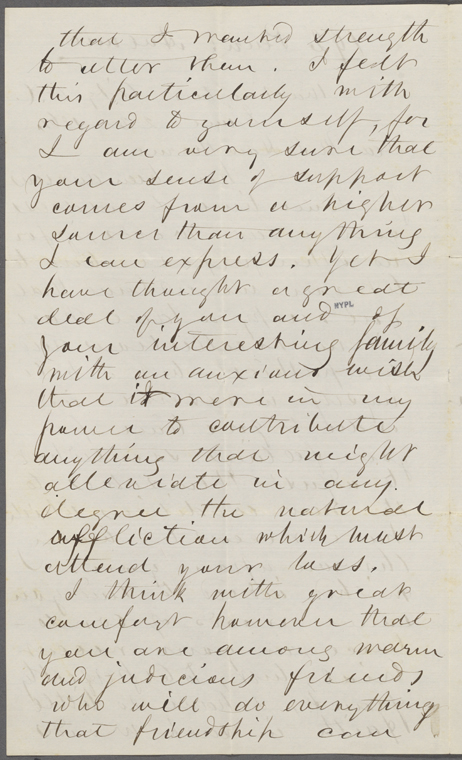 that I wanted strength
to utter them. I felt
this particularly with
regard to yourself, for
I am very sure that
your sense of support
comes from a higher
source than anything
I can express. Yet I
have thought a great
deal of you and of
NYPL
your interesting family
with an anxious wish
that it were in my
power to contribute
anything that might
alleviate in any
degree the natural
affliction which must
attend your loss.
I think with great
comfort however that
you are among warm
and judicious friends
who will do everything
that friendship can